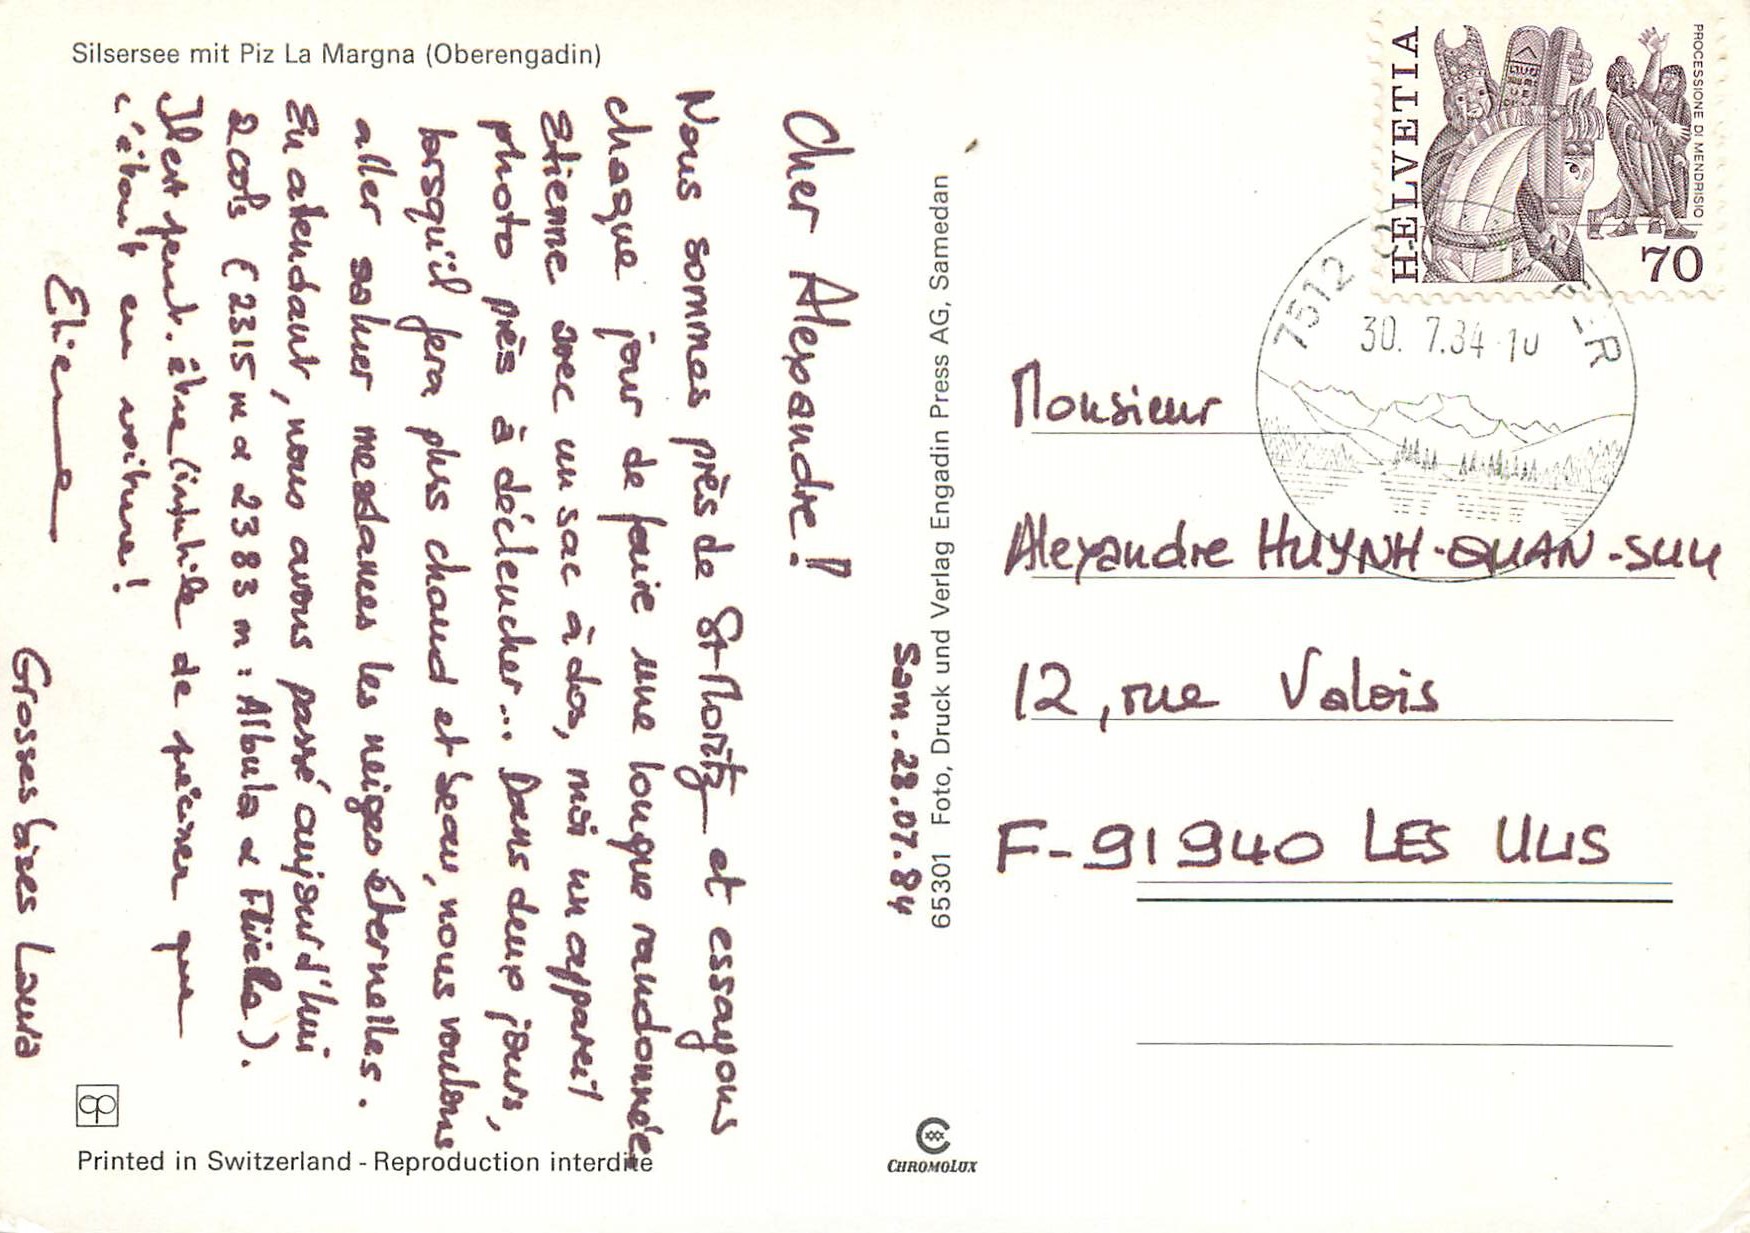 Silsersee mit Piz La Margna (Oberengadin)
Sam. 28.07.84
Cher Alexandre!
Nous sommes près de St-Moritz et essayons
chaque jour de faire une longue randonnée
Etienne avec un sac à dos, moi un appareil
photo près à déclencher... Dans deux jours,
lorsqu'il fera plus chaud et beau, nous voulons
aller saluer mesdames les neiges éternelles.
En attendant, nous avons passé aujourd'hui
2 cols (2315 m & 2383 m : Albula & Flüela).
Il est peut-être inutile de préciser que
c'était en voiture!
Grosses bises Laura
Etienne
Printed in Switzerland - Reproduction interdite
65301 Foto, Druck und Verlag Engadin Press AG, Samedan
CHROMOLUX
HELVETIA
PROCESSIONE DI MENDRISIO
70
7512
30. 7.84-10
Monsieur
Alexandre HUYNH-QUAN-SUU
12, rue Valois
F-91940 LES ULIS